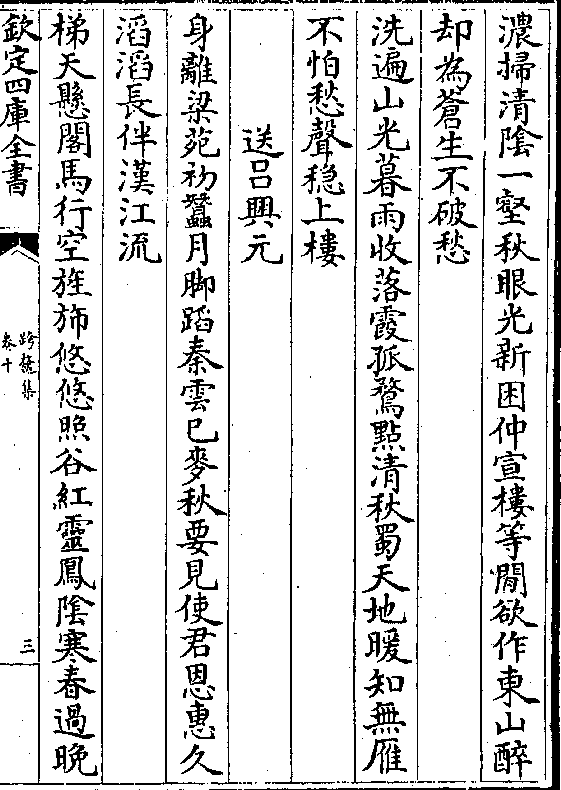 濃掃清陰一壑秋眼光新困仲宣樓等閒欲作東山醉
却為蒼生不破愁
洗遍山光暮雨收落霞孤鶩點清秋蜀天地暖知無雁
不怕愁聲穩上樓
送呂興元
身離梁苑初蠶月脚蹈秦雲已麥秋要見使君恩惠久
滔滔長伴漢江流
梯天懸閣馬行空旌斾悠悠照谷紅靈鳳陰寒春過晚
欽定四庫全書
跨鼇集
卷十
三